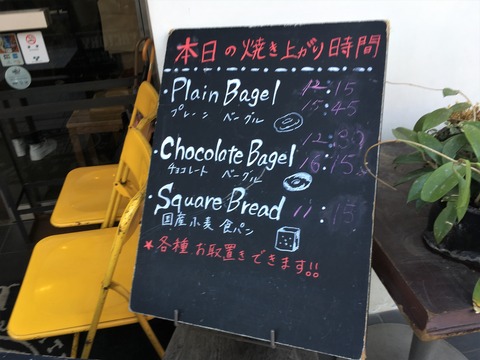 本日の焼き上がり時間
・Plain Bagel 12:15
プレーン ベーグル 15:45
・Chocolate Bagel 12:30
チョコレート ベーグル 16:15
・Square Bread 11:15
国産小麦 食パン
★各種、お取置きできます!!